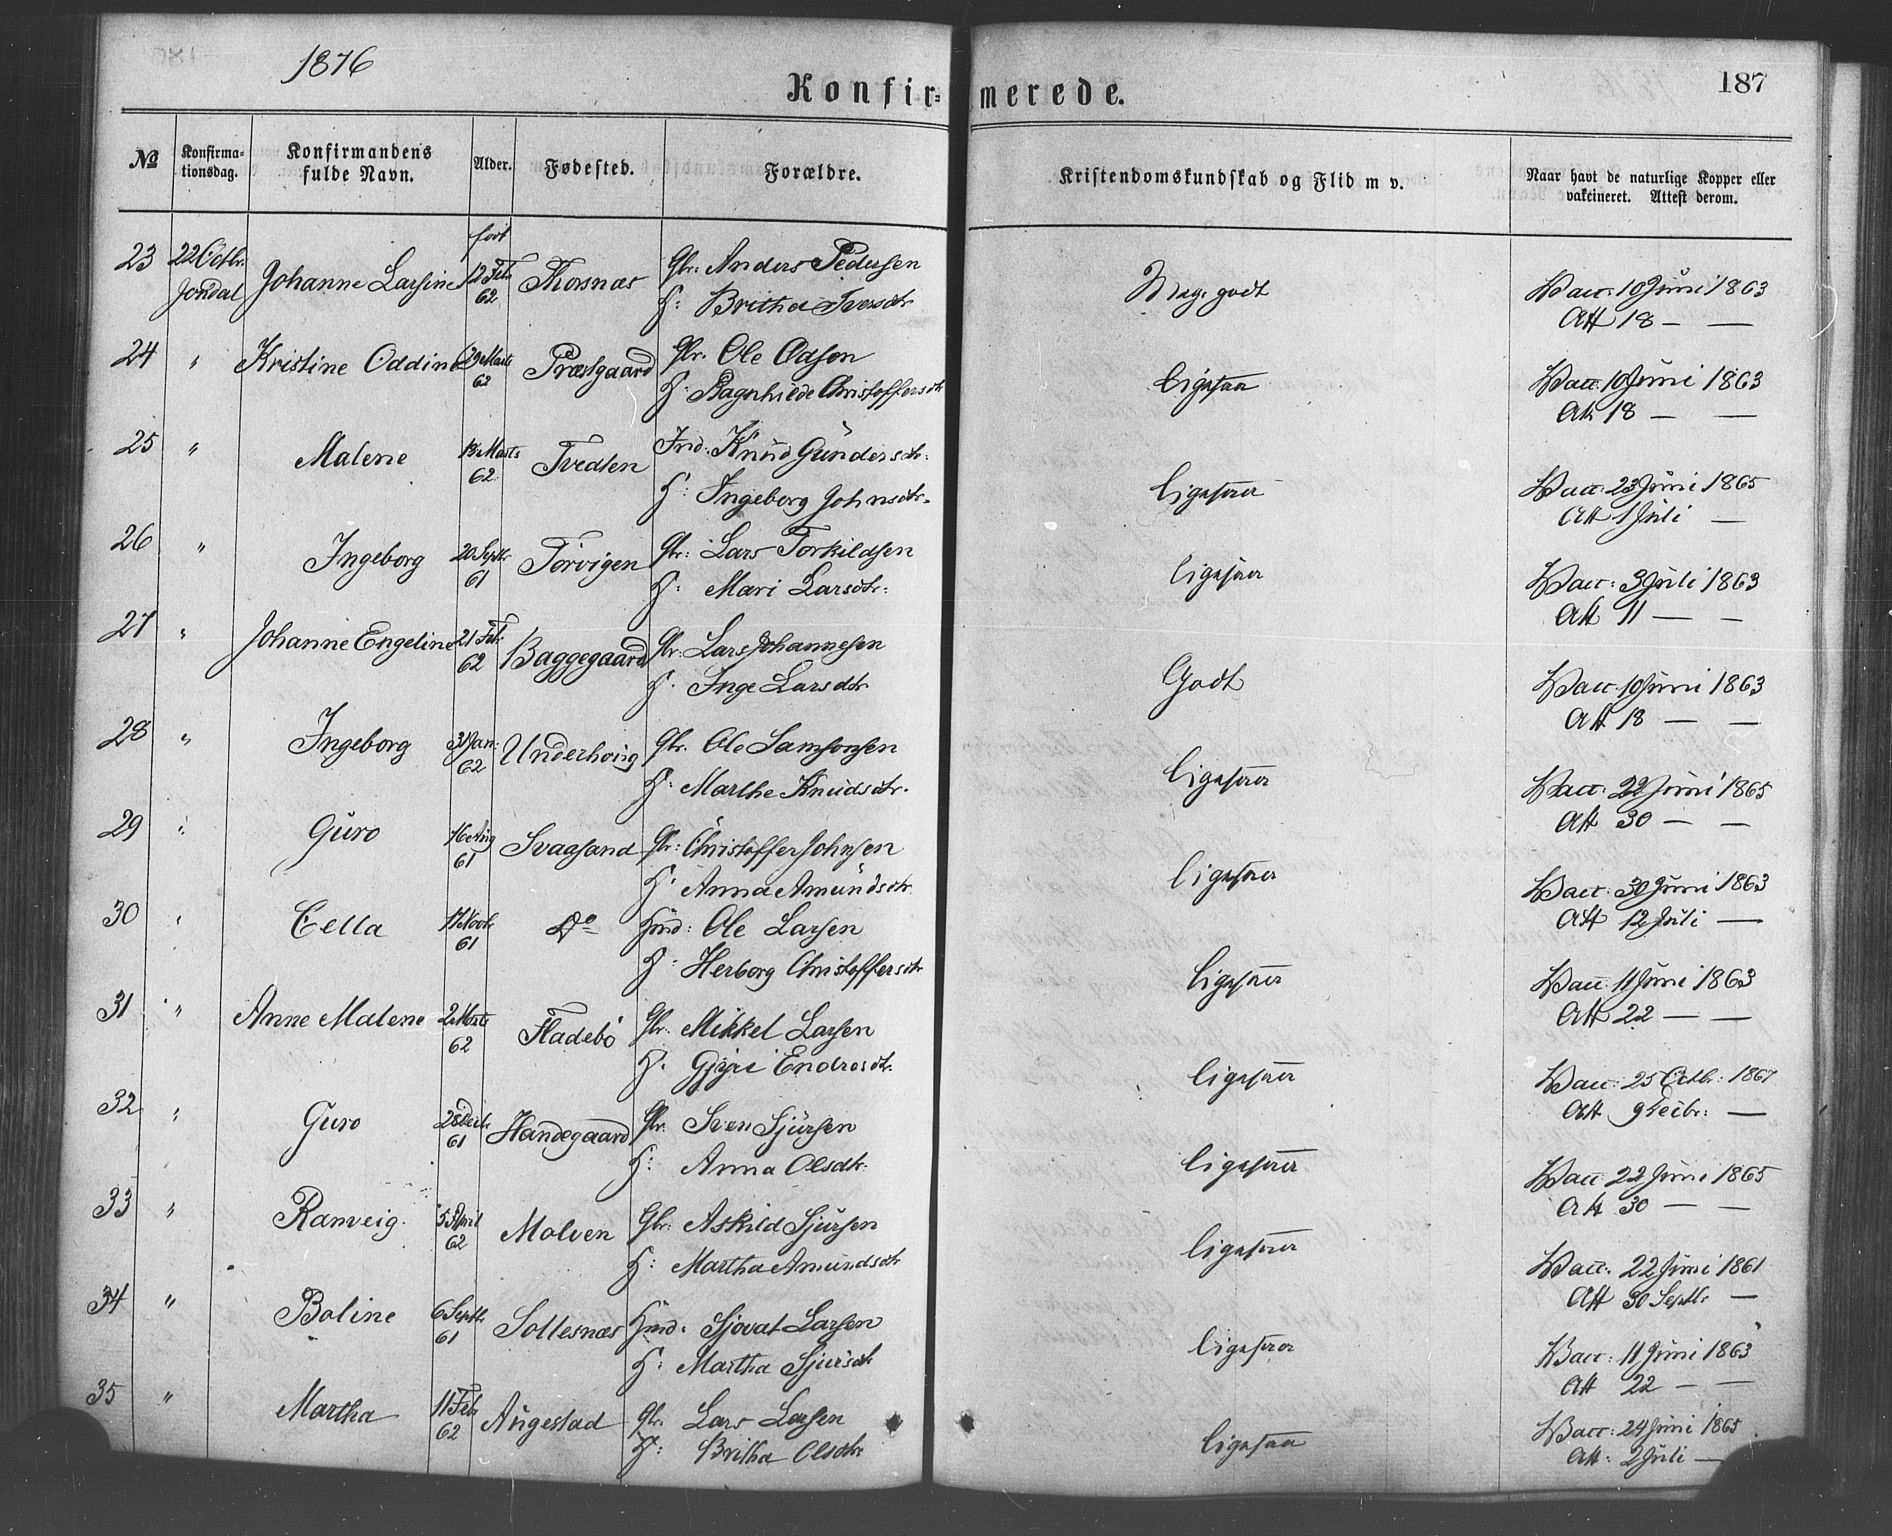 1876
187
Konfir= merede.
№ Konfirma-tionsdag. Konfirmandens fulde Navn. Alder. Fødested. Forældre. Kristendomskundskab og Flid m v. Naar havt de naturlige Kopper eller vakcineret. Attest derom.
født
23 22 Octbr. Johanne Larsine 12 Feb. Thorsnæs Gbr: Anders Pedersen Meg. godt Vacc: 10 Juni 1863
Jondal 62 H: Britha Iversdtr Att 18 — —
24 " Kristine Oddine 29 Marts Præstgaard Gbr. Ole Odson ligesaa Vacc. 10 Juni 1863
62 H: Ragnhilde Christoffersdtr Att 18 — —
25 " Malene Marts Tvedten Ind: Knud Gundersdtr: ligesaa Vacc: 23 Juni 1865
62 H: Ingeborg Johnsdtr. Att 1 Juli —
26 " Ingeborg 20 Septbr Torvigen Gbr: Lars Torkildsen ligesaa Vacc: 3 Juli 1863
61 H: Mari Larsdtr: Att 11 — —
27 " Johanne Engeline 21 Feb. Baggegaard Gbr: Lars Johannesen Godt Vacc. 10 Juni 1863
62 H. Inge Larsdtr. Att 18 — —
28 " Ingeborg 31 Jan: Underhoug Gbr. Ole Samsonsen ligesaa Vacc: 22 Juni 1865
62 H: Marthe Knudsdtr. Att 30 — —
29 " Guro 16 Aug Svaasand Gbr: Christoffer Johnsen ligesaa Vacc: 30 Juni 1863
61 H: Anna Amundsdtr. Att 12 Juli —
30 " Cella 17 Novb. Do Hmd: Ole Larsen ligesaa Vacc 11 Juni 1863
61 H: Herborg Christoffersdtr Att 22 — —
31 " Anne Malene 2 Marts Fladebö Gbr. Mikkel Larsen ligesaa Vacc: 25 Octbr: 1867
62 H. Gjyri Endresdtr. Att 9 Decbr: —
32 " Guro 28 Decb. Handegaard Gbr. Sven Sjursen ligesaa Vacc 22 Juni 1865
61 H: Anna Olsdtr. Att 30 — —
33 " Ranveig 5 April Molven Gbr: Askild Sjursen ligesaa Vacc. 22 Juni 1861
62 H: Martha Amundsdtr Att 30 Septbr —
34 " Boline 6 Septbr. Sollesnæs Hmd. Sjovat Larsen ligesaa Vacc: 11 Juni 1863
61 H: Martha Sjursdtr Att 22 — —
35 " Martha 11 Feb. Augestad Gbr. Lars Larsen ligesaa Vacc: 24 Juni 1865
62 H: Britha Olsdtr. Att: 2 Juli —